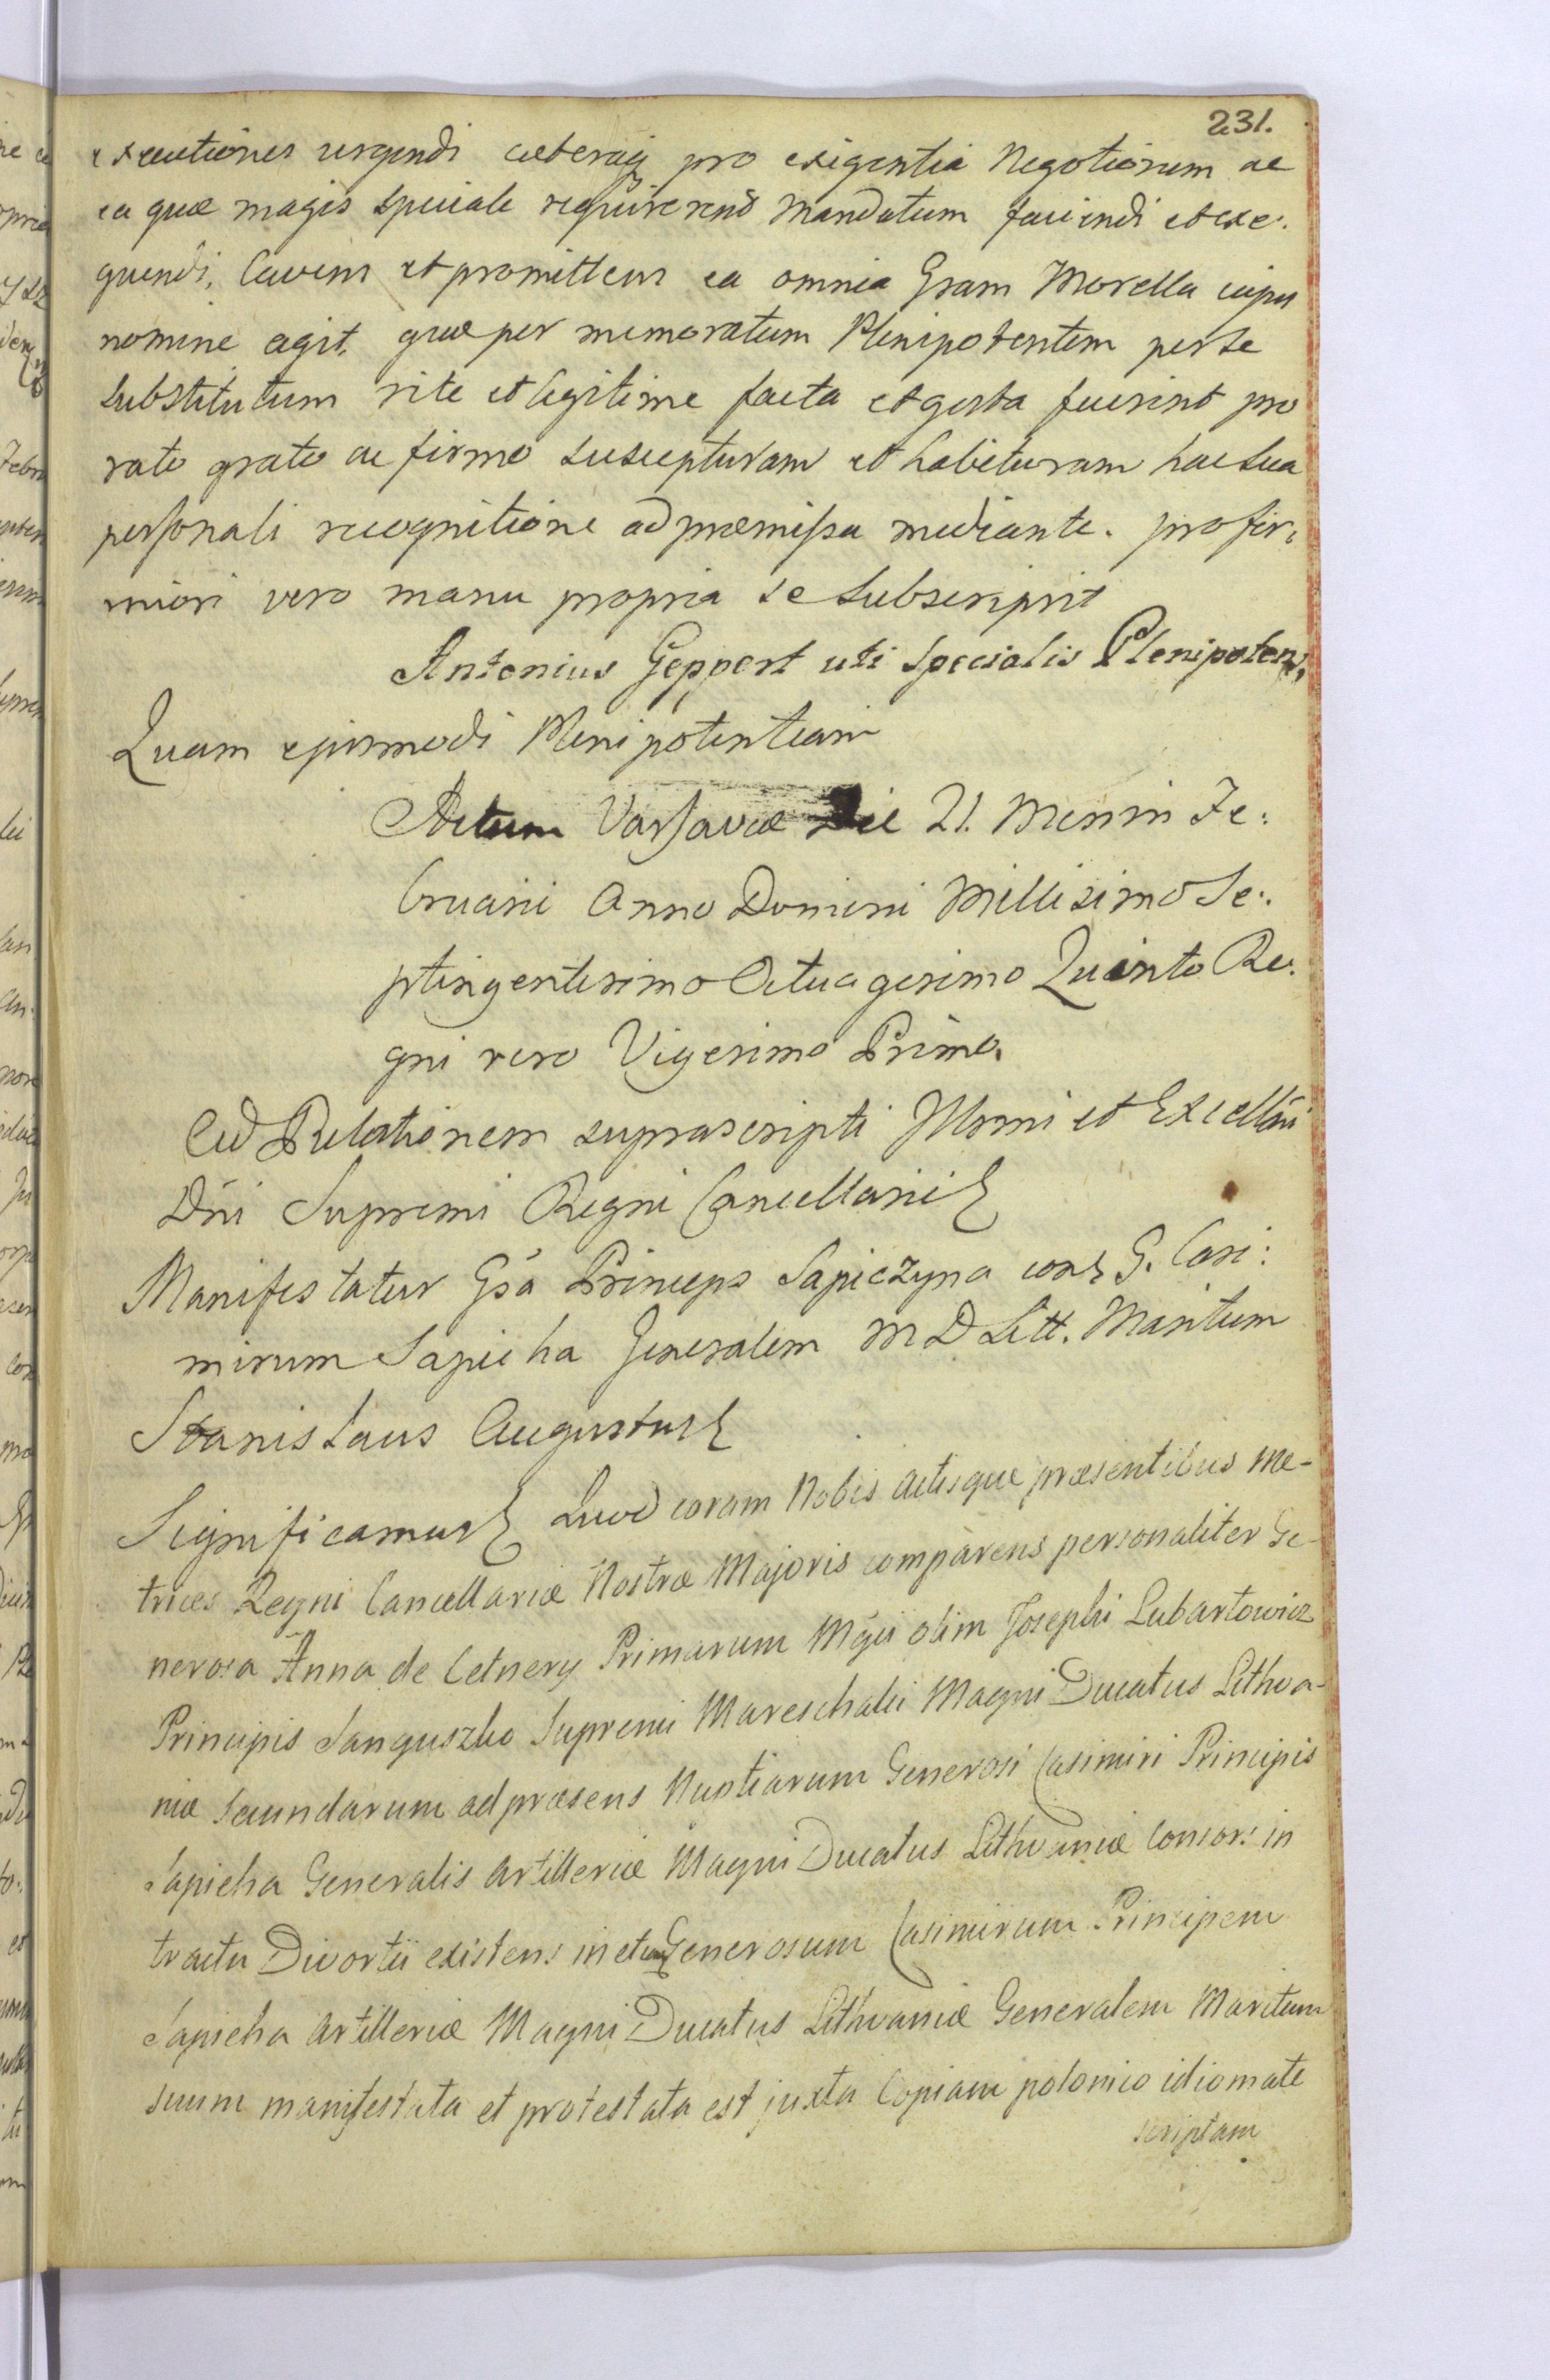 231.
executiones urgendi caeteraq pro exigentia Negotiorum ac
ea quæ magis speciale requirerent Mandatum faciendi et exe:
quendi, Cavens et promittens ea omnia Gsam Morella cujus
nomine agit, quæ per memoratum Plenipotentem per se
substitutum rite et legitime facta et gesta fuerint pro
rato grato ac firmo suscepturam et habituram hac sua
personali recognitione ad præmissa mediante. pro fir:
miori vero manu propria se subscripsit
Antonius Geppert uti specialis Plenipotens,
Quam ejusmodi Plenipotentiam
Actum Varsaviæ Die 21. Mensis Fe:
bruarii Anno Domini Millesimo Se:
ptingentesimo Octuagesimo Quinto Re:
gni vero Vigesimo Primo.
Ad Relationem suprascripti Illmi et Excellmi
Dni Supremi Regni Cancellarii
Manifestatur Gsa Princeps Sapiezyna con G. Casi:
mirum Sapieha Generalem M D Litt. Maritum
Stanislaus Augustus
Significamus Quod coram Nobis Actisque præsentibus Me-
trices Regni Cancellariæ Nostræ Majoris comparens personaliter Ge-
nerosa Anna de Cetnery Primarum Mgci olim Josephi Lubartowicz
Principis Sanguszko Supremi Mareschalci Magni Ducatus Lithva-
niæ Secundarum ad præsens Nuptiarum Generosi Casimiri Principis
Sapieha Generalis Artilleriæ Magni Ducatus Lithvaniæ Consors in
tractu Divortii existens in et Generosum Casimirum Principem
Sapieha Artilleriæ Magni Ducatus Lithvaniæ Generalem Maritum
suum manifestata et protestata est juxta Copiam polonico idiomate
scriptam